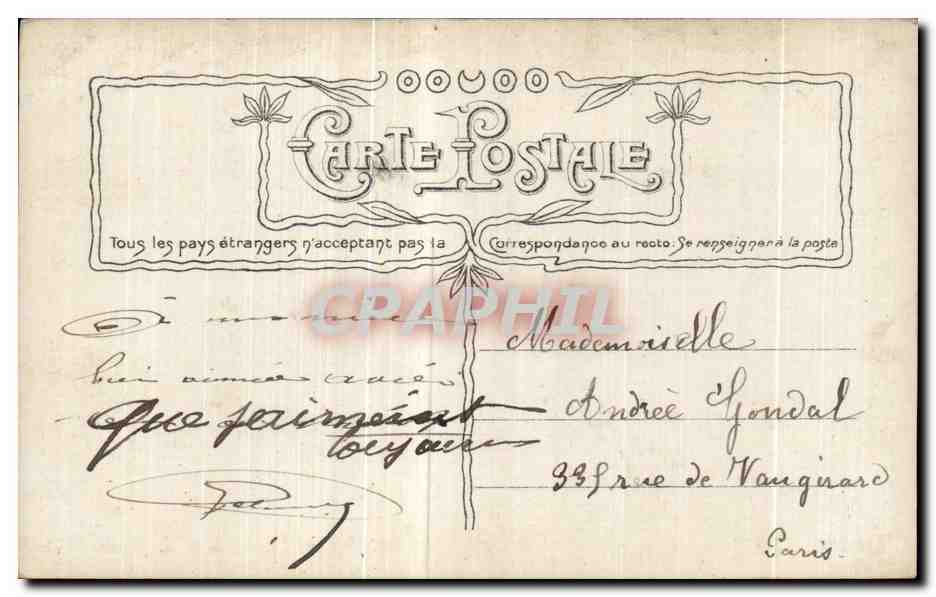 CARTE POSTALE
Tous les pays étrangers n'acceptant pas la Correspondance au recto. Se renseigner à la poste
CPAPHIL
à
bien aimée
Que j'aimerais
toujours
Mademoiselle
Andrée Gondal
335 rue de Vaugirard
Paris.